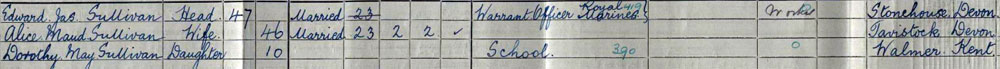 Edward Jas Sullivan Head 47 Married 23 Warrant Officer Royal Marines 419 Worker Stonehouse Devon
Alice Maud Sullivan Wife 46 Married 23 2 2 Tavistock Devon
Dorothy May Sullivan Daughter 10 School. 390 0 Walmer Kent